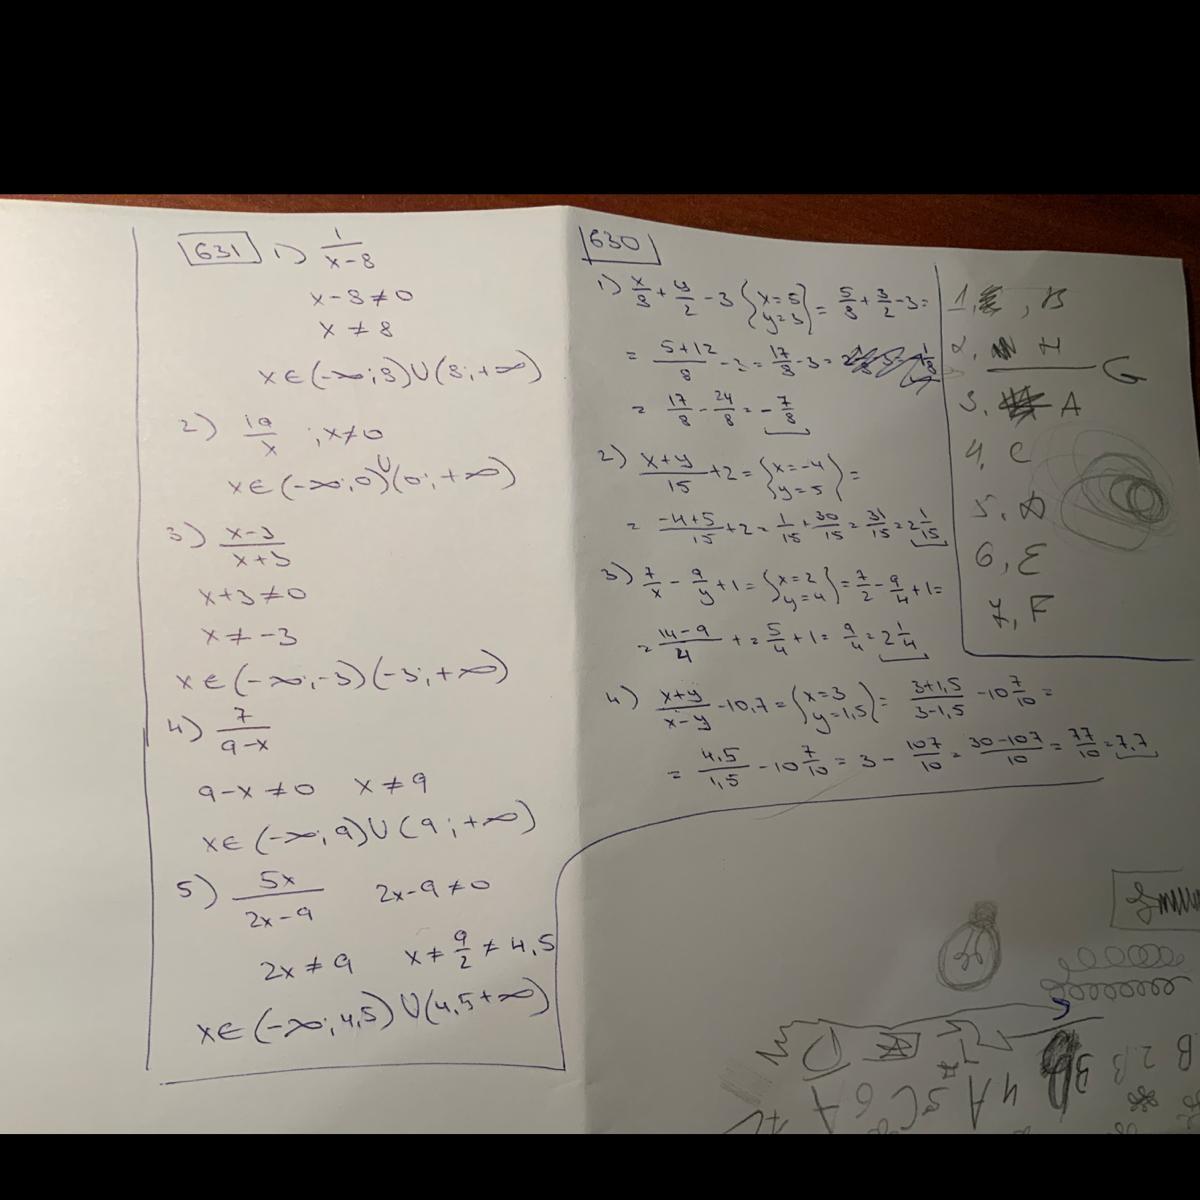 631 1) 1/(x-8)
x-8≠0
x ≠ 8
x∈(-∞;8)∪(8;+∞)
2) 19/x ; x≠0
x∈(-∞;0)∪(0;+∞)
3) (x-3)/(x+3)
x+3≠0
x≠-3
x∈(-∞;-3)(-3;+∞)
4) 7/(9-x)
9-x≠0 x≠9
x∈(-∞;9)∪(9;+∞)
5) 5x/(2x-9) 2x-9≠0
2x≠9 x≠9/2≠4,5
x∈(-∞;4,5)∪(4,5+∞)
630
1) x/8+y/2-3{x=5 y=3}=5/8+3/2-3=
=(5+12)/8-3=17/8-3=
=17/8-24/8=-7/8
2) (x+y)/15+2={x=-4 y=5}=
=(-4+5)/15+2=1/15+30/15=31/15=2 1/15
3) 7/x-9/y+1={x=2 y=4}=7/2-9/4+1=
=(14-9)/4+=5/4+1=9/4=2 1/4
4) (x+y)/(x-y)-10,7={x=3 y=1,5}=(3+1,5)/(3-1,5)-10 7/10=
=4,5/1,5-10 7/10=3-107/10=(30-107)/10=77/10=7,7
1, , B
2, H
G
3, A
4, C
5, D
6, E
7, F